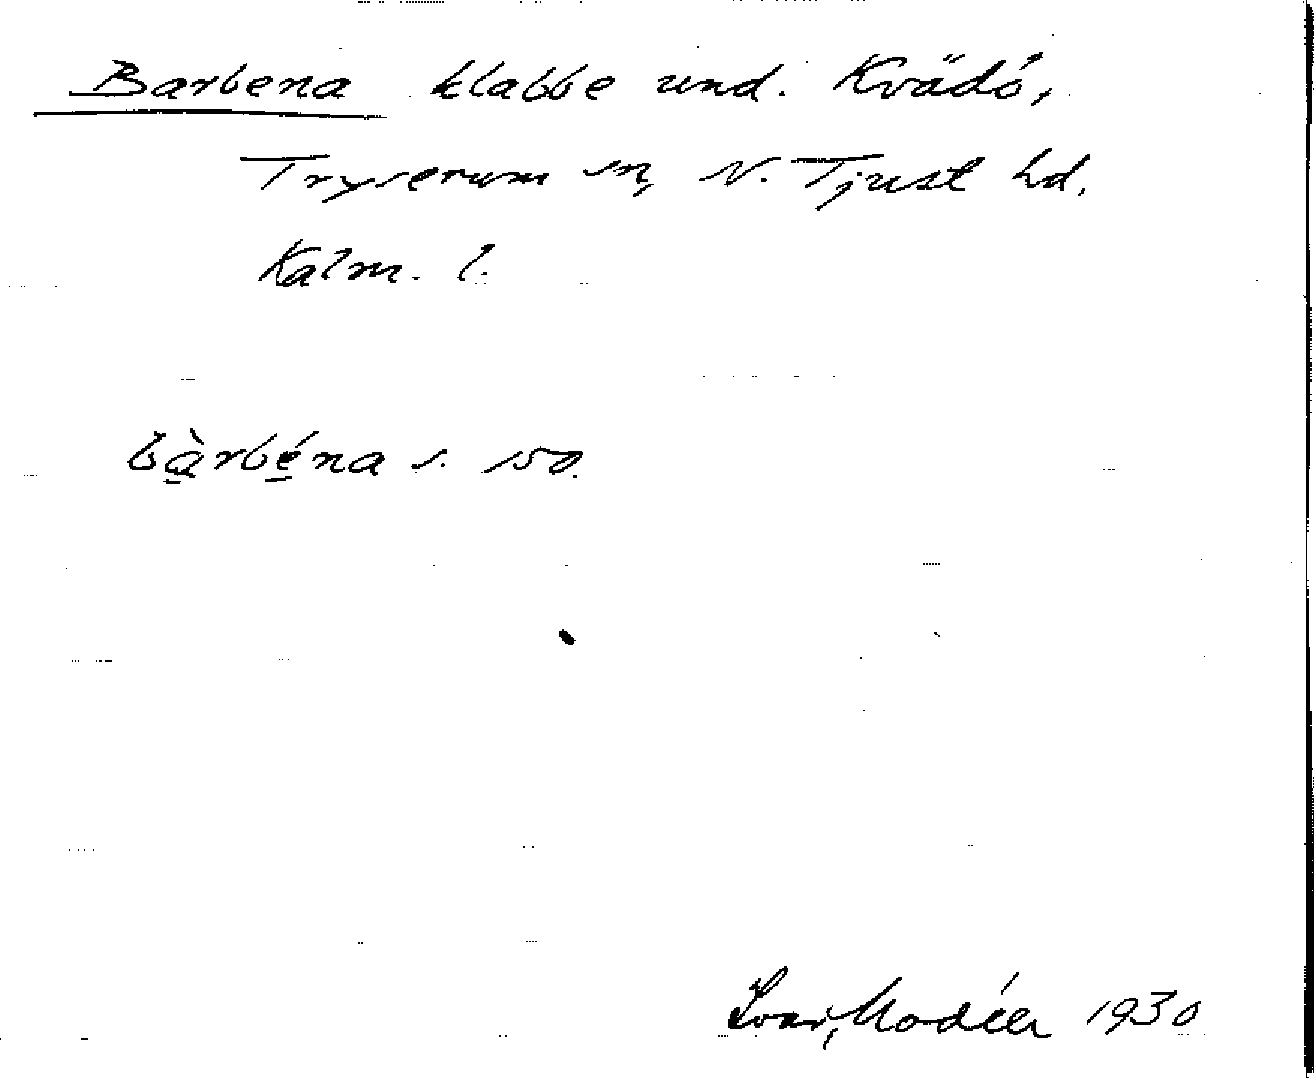 Barbena klabbe und. Kvädö,
Tryserum sn, N. Tjust hd.
Kalm. l.
bàrbéna s. 150.
Ivar Modéer 1930